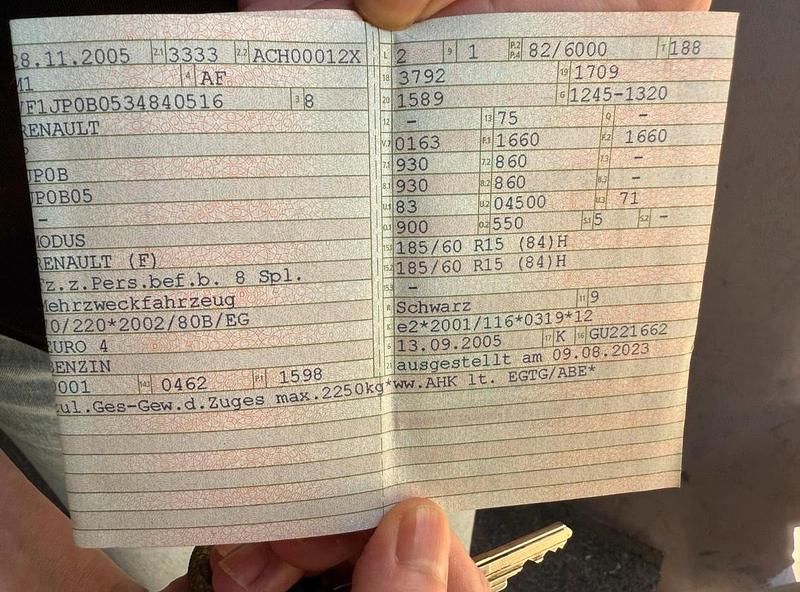 28.11.2005 2.1 3333 2.2 ACH00012X
M1 4 AF
VF1JP0B0534840516 3 8
RENAULT
JP0B
JP0B05
-
MODUS
RENAULT (F)
Fz.z.Pers.bef.b. 8 Spl.
Mehrzweckfahrzeug
70/220*2002/80B/EG
EURO 4
BENZIN
0001 14.1 0462 P.1 1598
zul.Ges-Gew.d.Zuges max.2250kg*ww.AHK lt. EGTG/ABE*
L 2 9 1 P.2 P.4 82/6000 T 188
18 3792 19 1709
20 1589 G 1245-1320
12 - 13 75 Q -
V.7 0163 F.1 1660 F.2 1660
7.1 930 7.2 860 7.3 -
8.1 930 8.2 860 8.3 -
U.1 83 U.2 04500 U.3 71
O.1 900 O.2 550 S.1 5 S.2 -
15.1 185/60 R15 (84)H
15.2 185/60 R15 (84)H
15.3 -
R Schwarz 11 9
K e2*2001/116*0319*12
6 13.09.2005 17 K 16 GU221662
21 ausgestellt am 09.08.2023